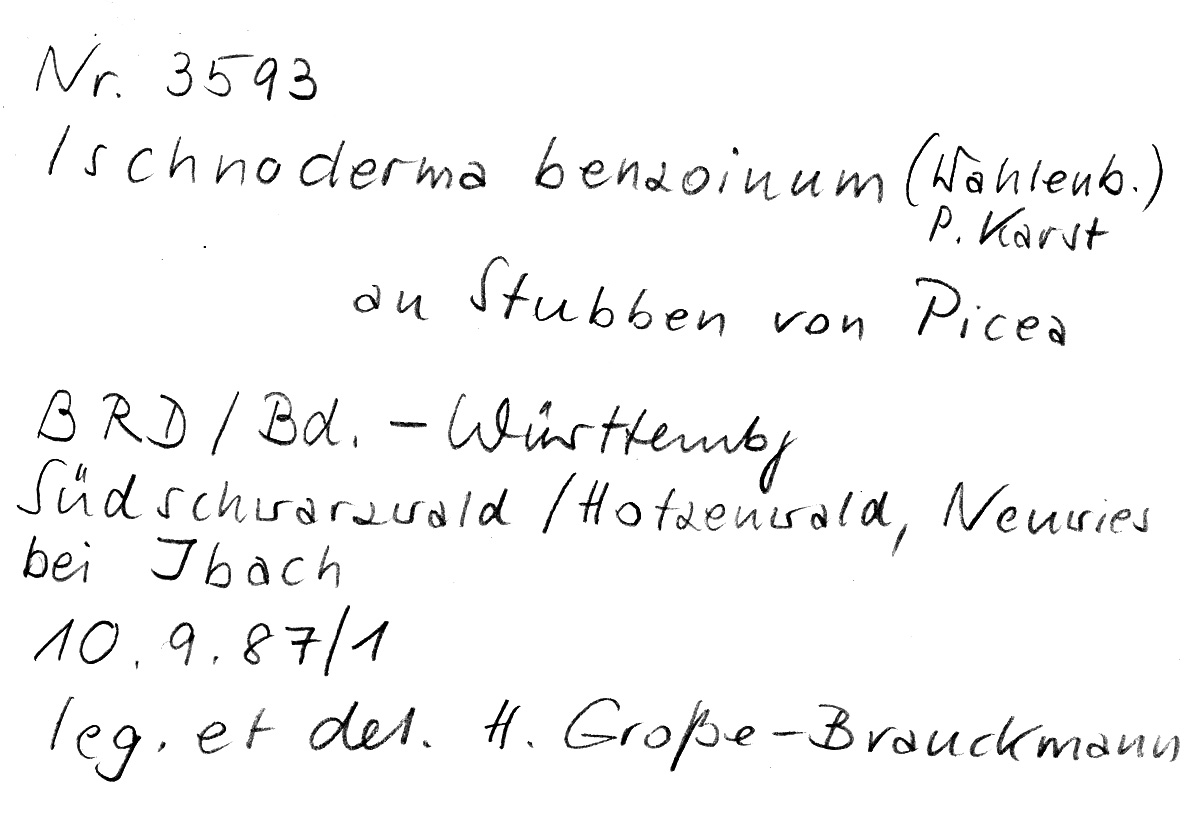 Nr. 3593
Ischnoderma benzoinum (Wahlenb.)
P. Karst
an Stubben von Picea
BRD / Bd. - Württembg
Südschwarzwald / Hotzenwald, Neuwies
bei Ibach
10.9.87/1
leg. et det. H. Große-Brauckmann